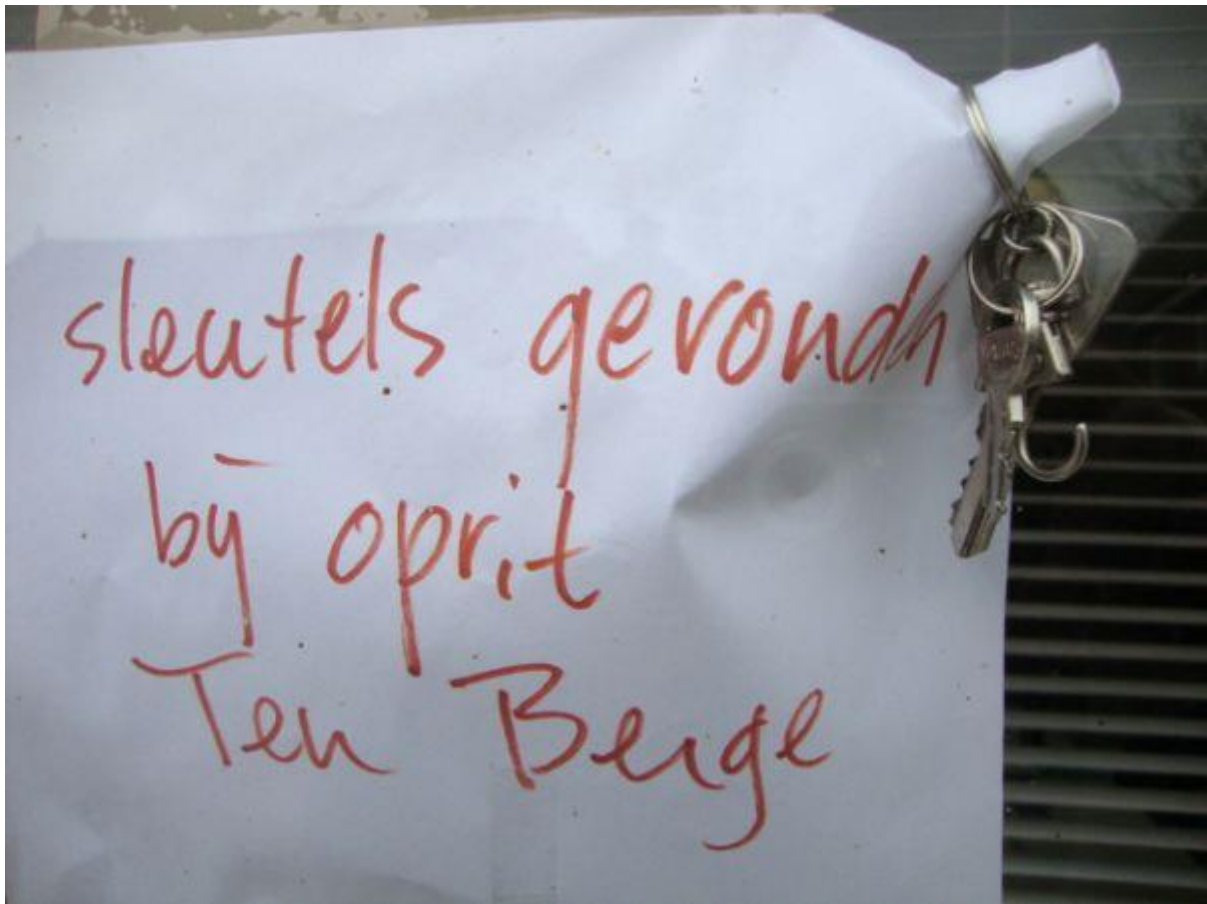 sleutels gevonden
bij oprit
Ten Berge